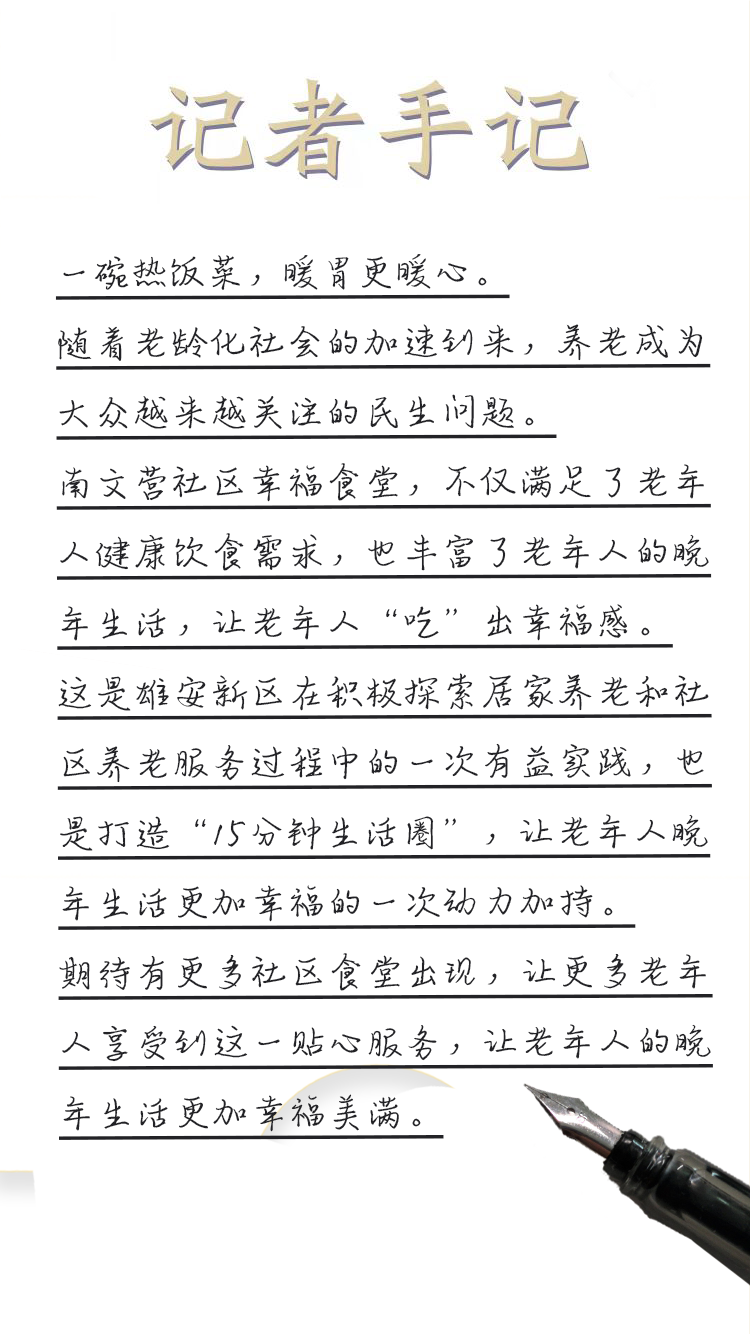 记者手记
一碗热饭菜，暖胃更暖心。
随着老龄化社会的加速到来，养老成为
大众越来越关注的民生问题。
南文营社区幸福食堂，不仅满足了老年
人健康饮食需求，也丰富了老年人的晚
年生活，让老年人“吃”出幸福感。
这是雄安新区在积极探索居家养老和社
区养老服务过程中的一次有益实践，也
是打造“15分钟生活圈”，让老年人晚
年生活更加幸福的一次动力加持。
期待有更多社区食堂出现，让更多老年
人享受到这一贴心服务，让老年人的晚
年生活更加幸福美满。